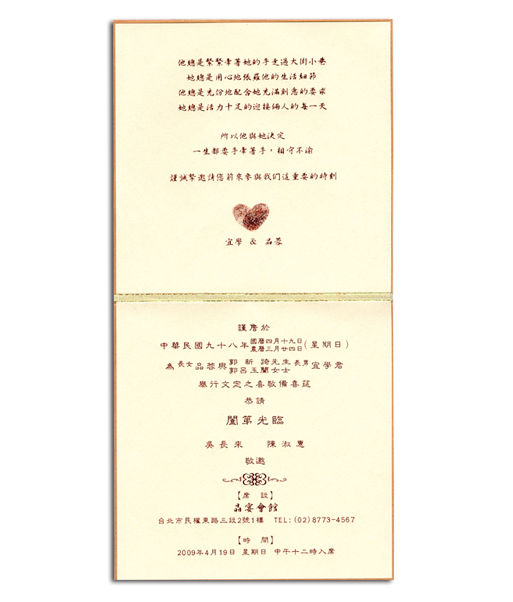 他總是緊緊牽著她的手走過大街小巷
她總是用心地張羅他的生活細節
他總是充份地配合她充滿創意的要求
她總是活力十足的迎接倆人的每一天
所以他與她決定
一生都要手牽著手，相守不渝
僅誠摯邀請您前來參與我們這重要的時刻
宜學 & 品蓉
謹詹於
中華民國九十八年國曆四月十九日農曆三月廿四日(星期日)
為長女品蓉與郭新 先生郭呂玉蘭女士長男宜學君
舉行文定之喜敬備喜筵
恭請
闔第光臨
吳長來 陳淑惠
敬邀
【席 設】
晶宴會館
台北市民權東路三段2號1樓 TEL:(02)8773-4567
【時 間】
2009年4月19日 星期日 中午十二時入席